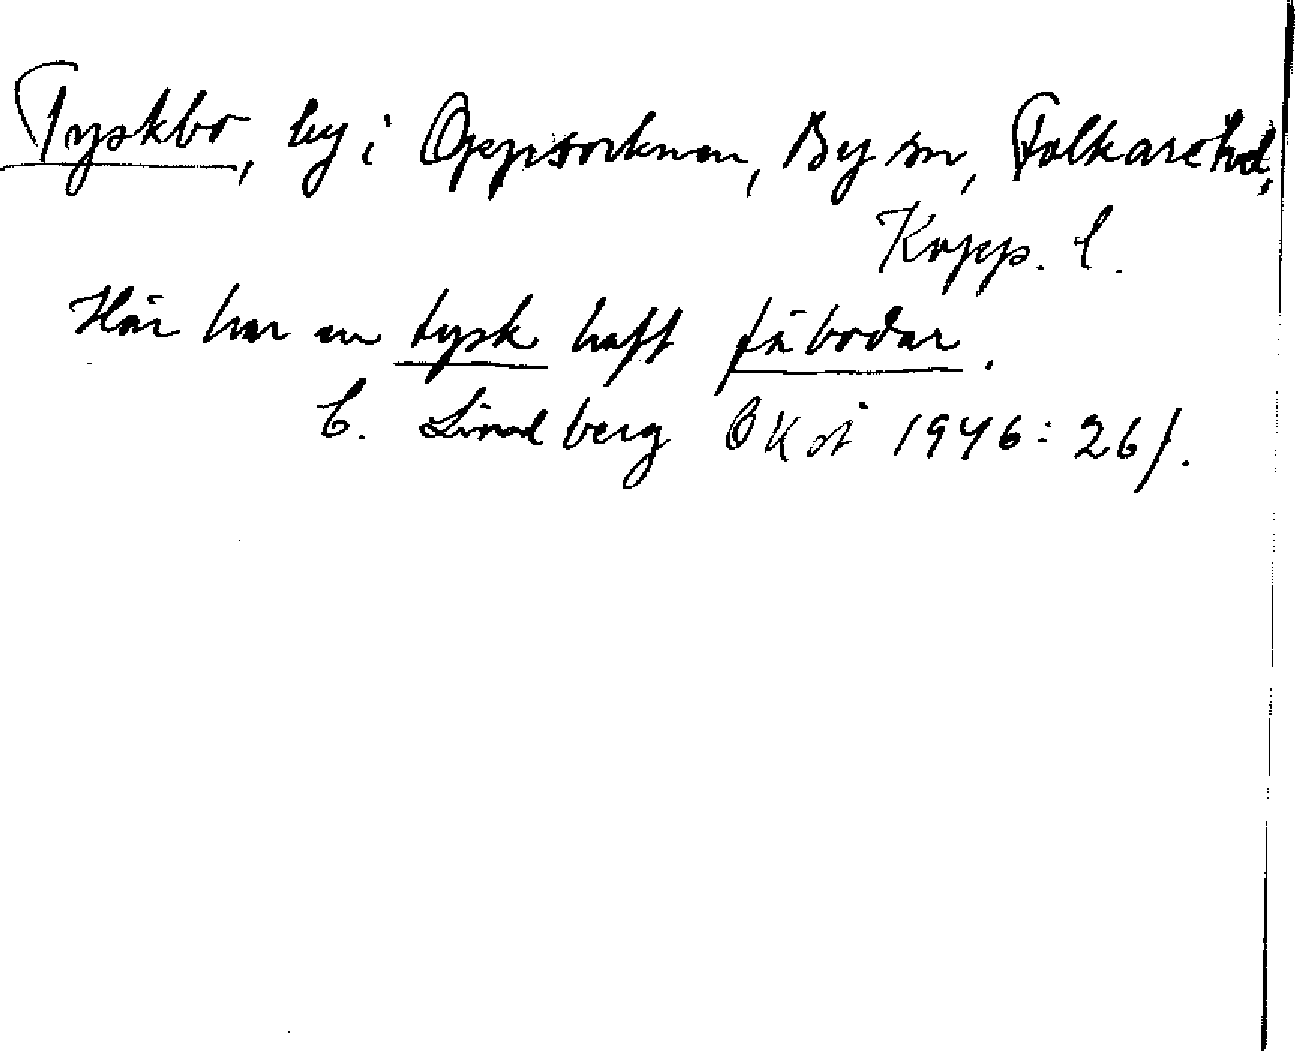 Tyskbo, by i Oppsocknen, By sn, Folkare hd,
Kopp. l.
Här har en tysk haft fäbodar.
C. Lindberg 1946: 26f.